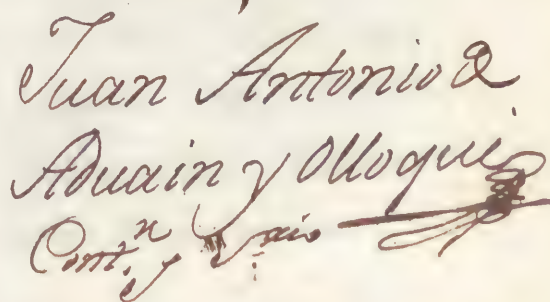 Juan Antonio de
Aduain y Olloqui
Cont.n y